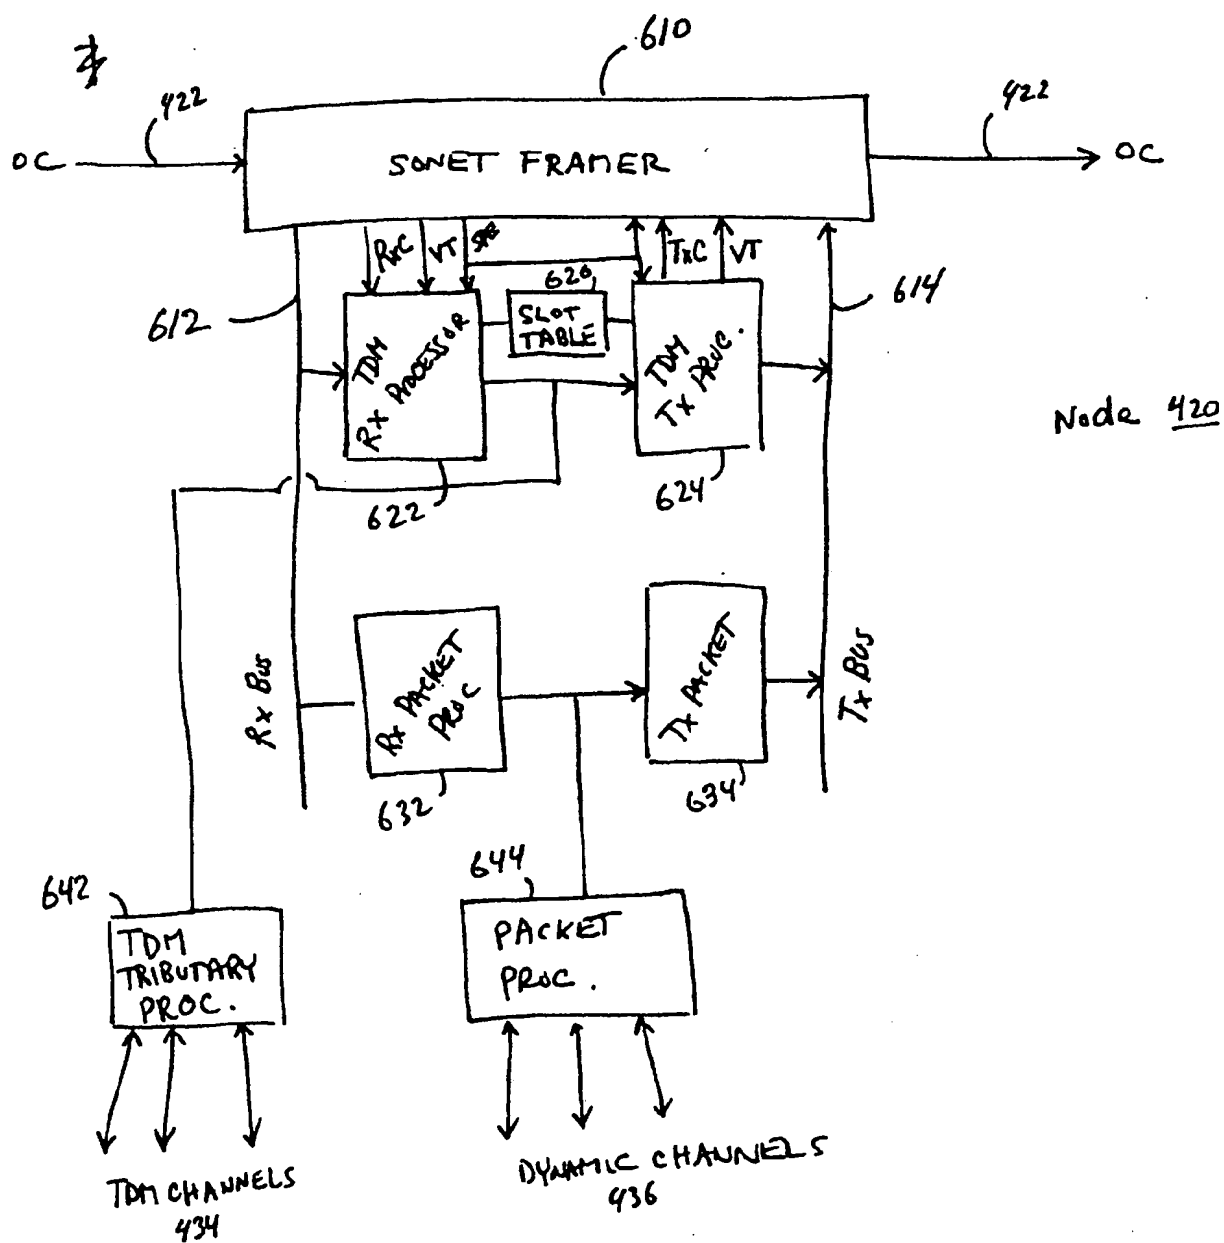 610
422
422
OC
SONET FRAMER
OC
RxC
VT
SPE
TxC
VT
620
SLOT
TABLE
612
614
TDM
RX PROCESSOR
TDM
TX PROC.
Node 420
622
624
Rx Bus
RX PACKET
PROC
TX PACKET
Tx BUS
632
634
642
644
TDM
TRIBUTARY
PROC.
PACKET
PROC.
TDM CHANNELS
434
DYNAMIC CHANNELS
436